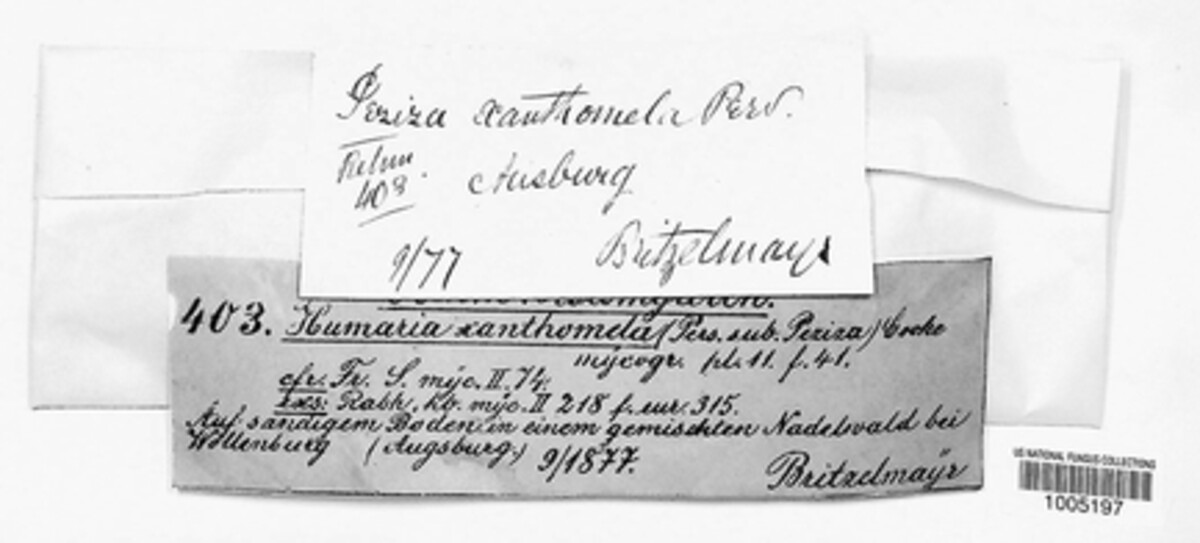 Peziza xanthomela Pers.
Rehm.
403
Ausburg
9/77
Britzelmayr
403. Humaria xanthomela (Pers. sub. Peziza) Cooke
mycogr. pl. 11. f. 41.
cfr. Fr. S. myc. II. 74.
exs: Rabh. hb. myc. II 218 f. eur. 315.
Auf sandigem Boden in einem gemischten Nadelwald bei
Wöllenburg (Augsburg.) 9/1877.
Britzelmaÿr
US NATIONAL FUNGUS COLLECTIONS
1005197